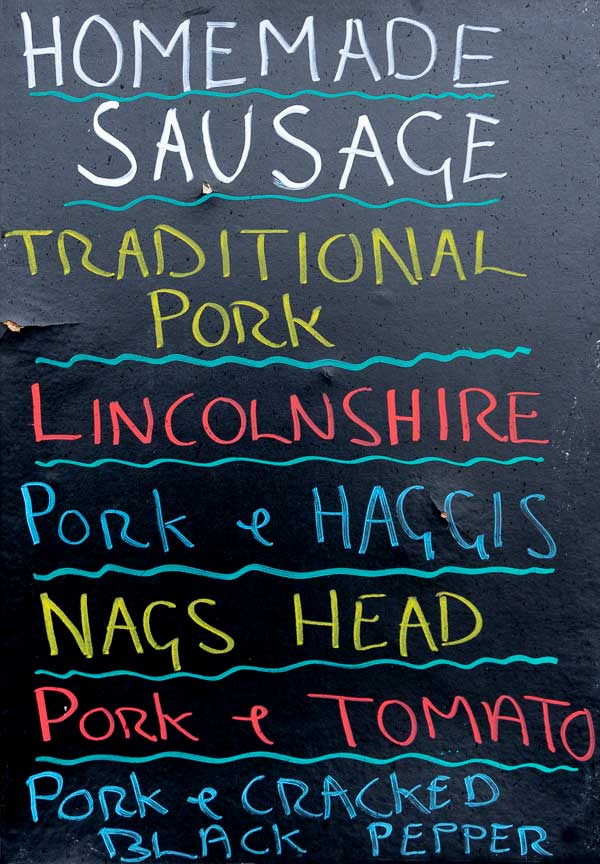 HOMEMADE
SAUSAGE
TRADITIONAL
PORK
LINCOLNSHIRE
PORK & HAGGIS
NAGS HEAD
PORK & TOMATO
PORK & CRACKED
BLACK PEPPER